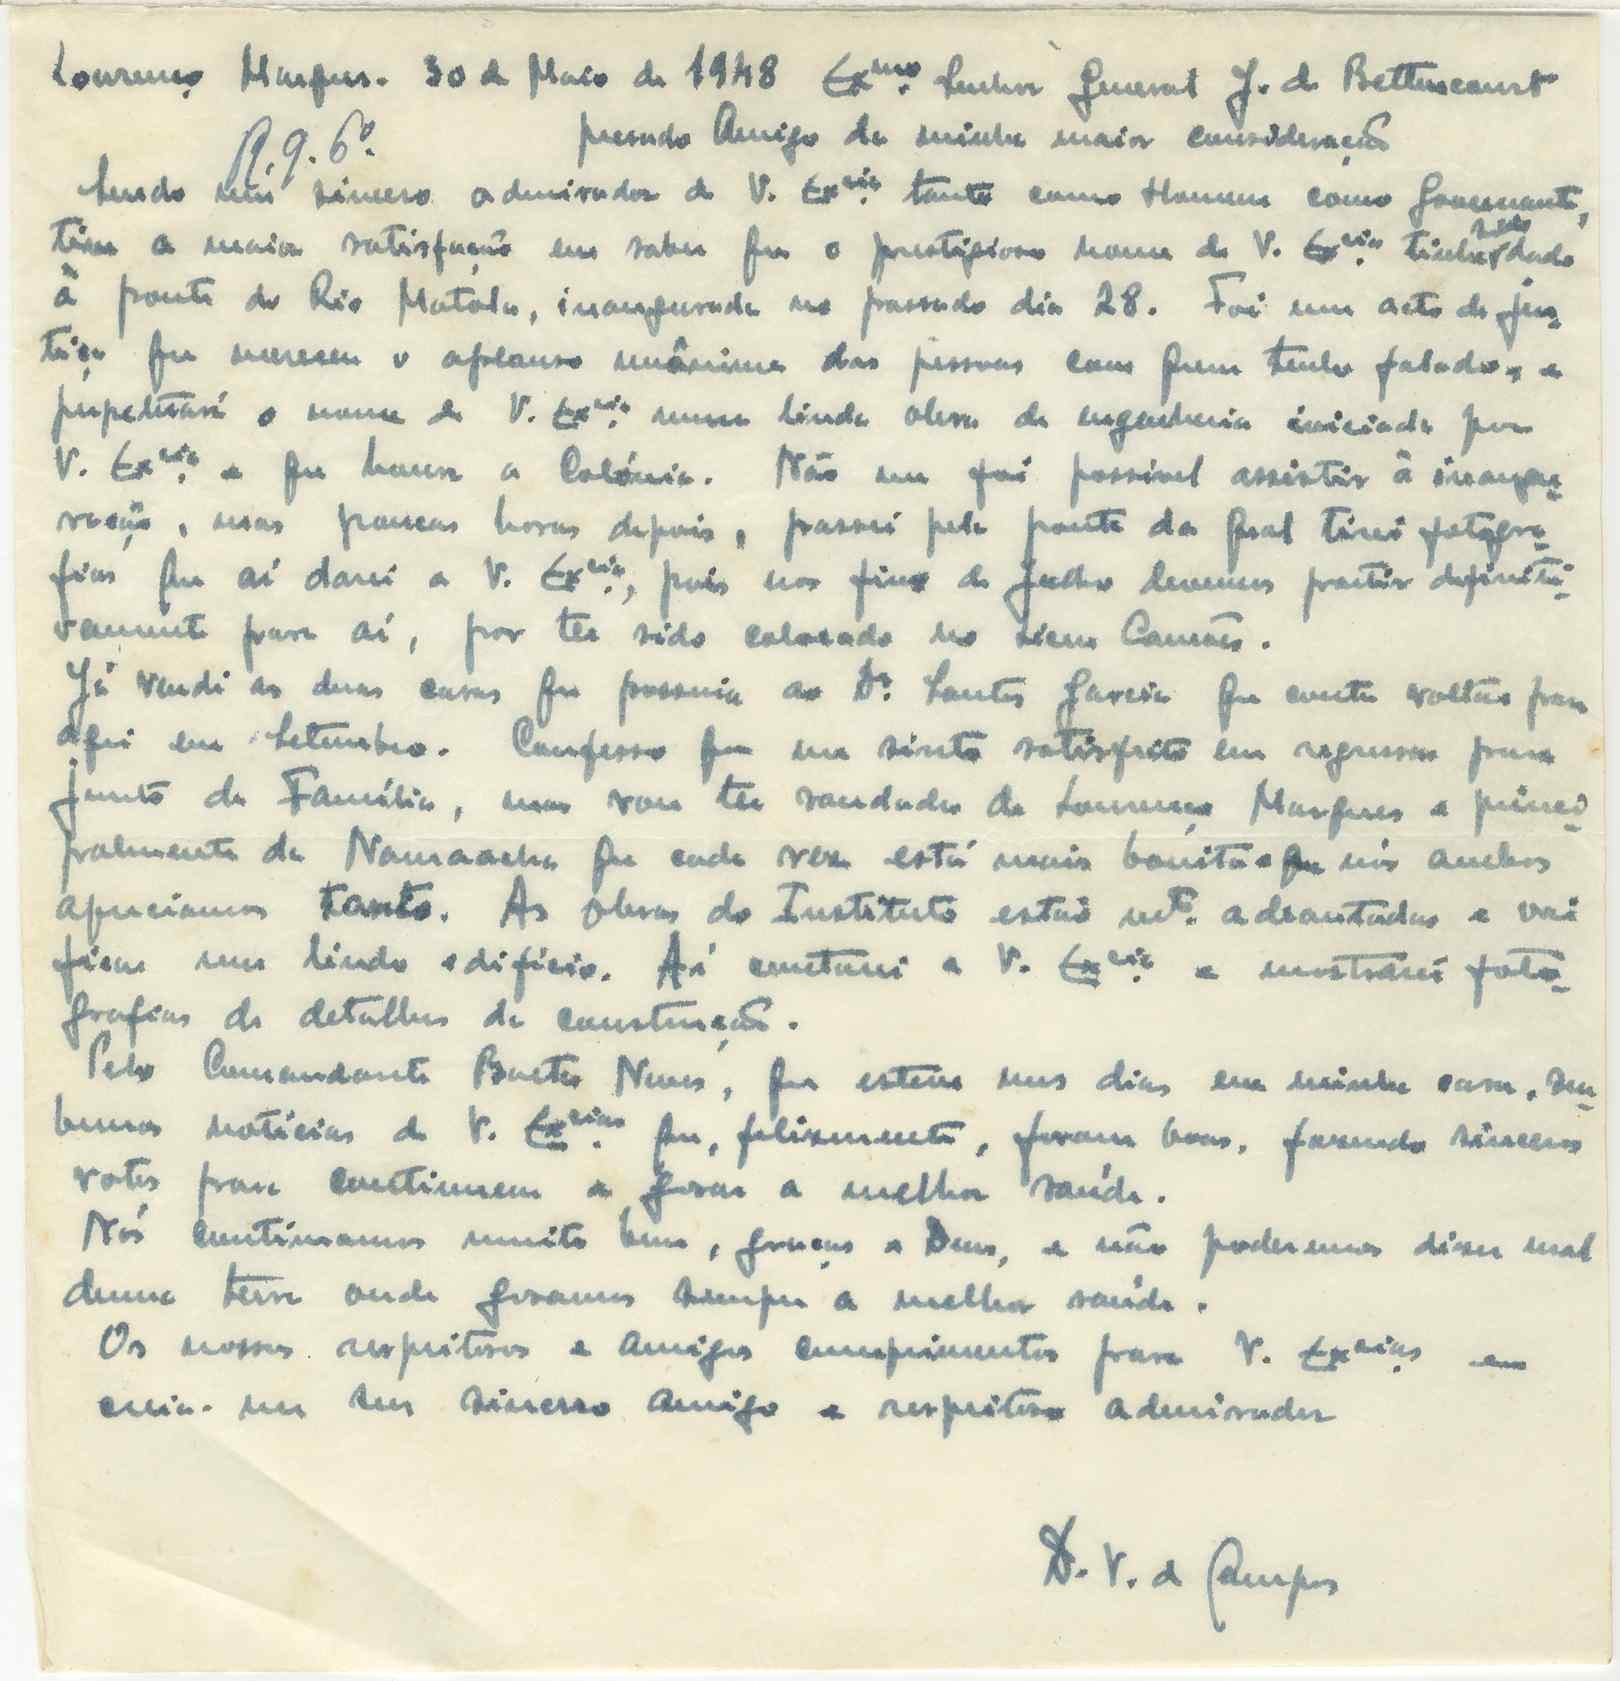 Lourenço Marques. 30 de Maio de 1948 Exmo. Senhor General J. de Bettencourt
prezado Amigo da minha maior consideração
R. 9. 6º.
Sendo um sincero admirador de V. Excia. tanto como Homem como Governante,
tive a maior satisfação em saber que o prestigioso nome de V. Excia. tinha sido dado
à ponte do Rio Matola, inaugurada no passado dia 28. Foi um acto de jus-
tiça que mereceu o aplauso unânime das pessoas com quem tenho falado, e
perpetuará o nome de V. Excia. numa linda obra de engenharia iniciada por
V. Excia. e que honra a Colónia. Não me foi possível assistir à inaugu-
ração, mas poucas horas depois, passei pela ponte da qual tirei fotogra-
fias que aí darei a V. Excia., pois nos fins de Julho devemos partir definiti-
vamente para aí, por ter sido colocado no Liceu Camões.
Já vendi as duas casas que possuia ao Dr. Santos Garcia que conta voltar para
aqui em Setembro. Confesso que me sinto satisfeito em regressar para
junto da Família, mas vou ter saudades de Lourenço Marques e princi-
palmente da Namaacha que cada vez está mais bonita e que nós ambos
apreciamos tanto. As obras do Instituto estão mto. adeantadas e vai
ficar um lindo edifício. Aí contarei a V. Excia. e mostrarei foto-
grafias de detalhes da construção.
Pelo Comandante Nunes, que esteve uns dias em minha casa, sou-
bemos notícias de V. Excias. que, felizmente, foram boas, fazendo sinceros
votos para continuem a gozar a melhor saúde.
Nós continuamos muito bem, graças a Deus, e não poderemos dizer mal
duma terra onde gozamos sempre a melhor saúde.
Os nossos respeitosos e amigos cumprimentos para V. Excias. em
cria-me seu sincero amigo e respeitoso admirador
D. V. de Campos